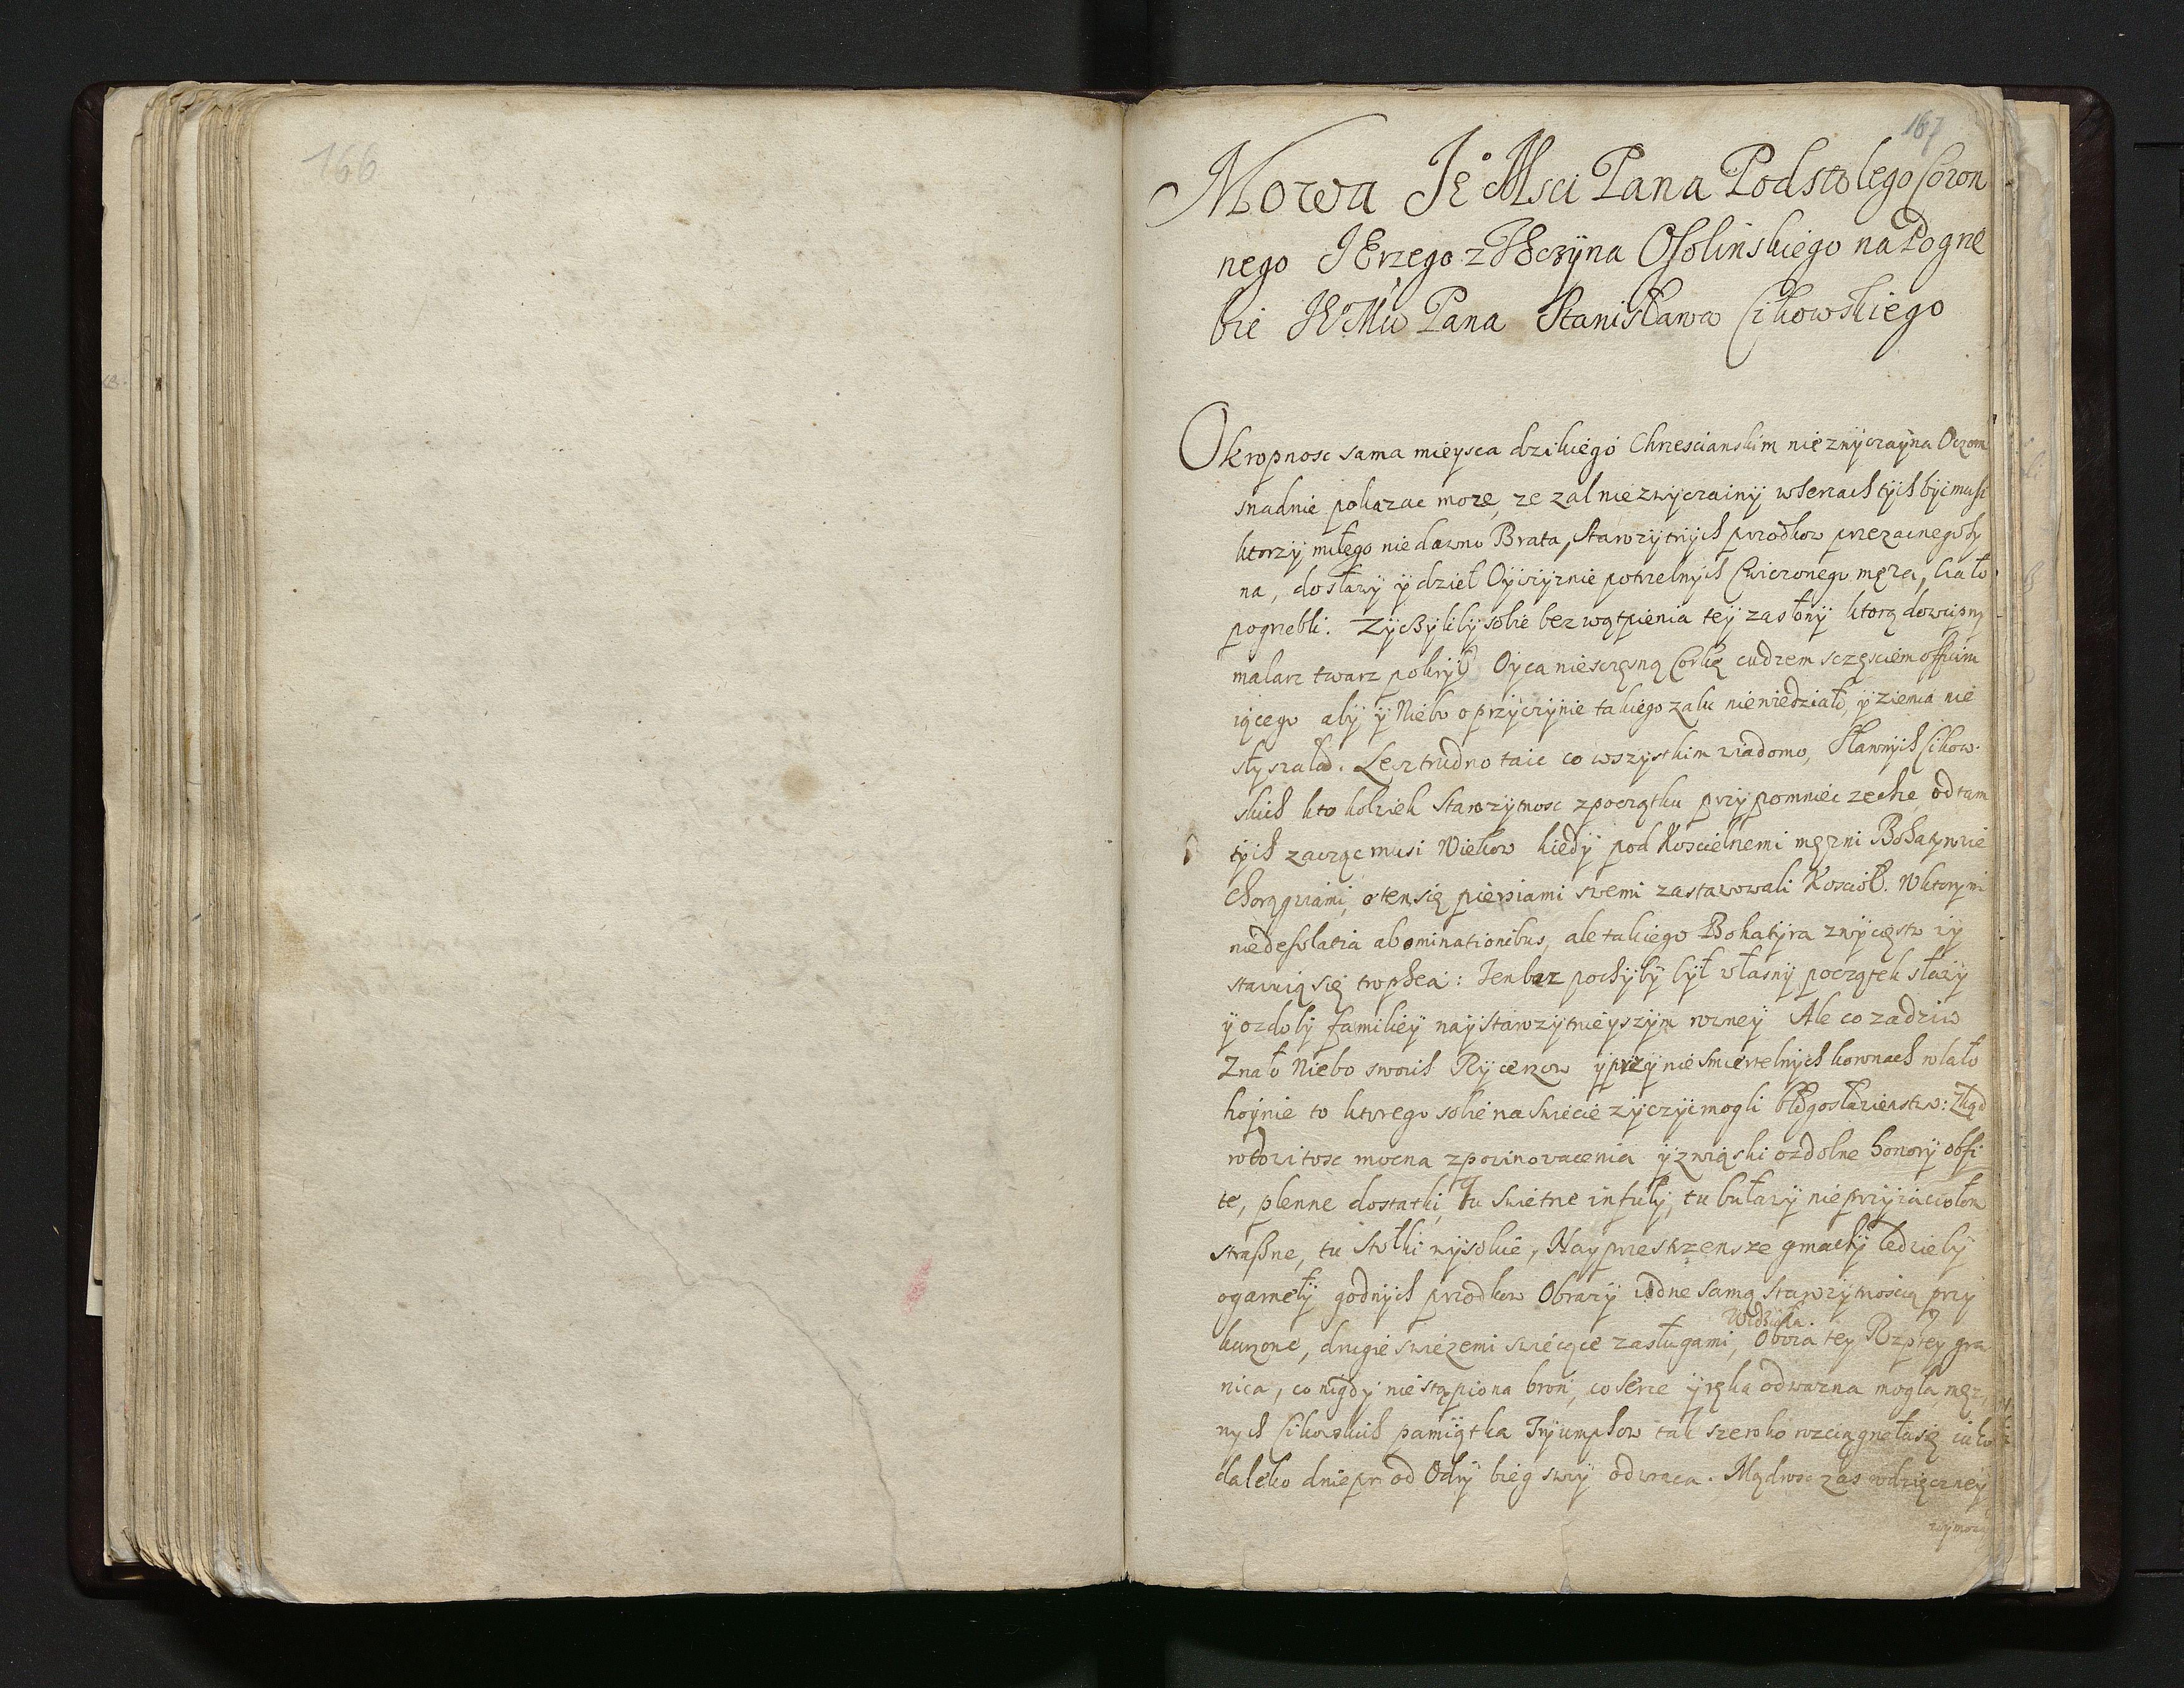 166
167
Mowa Je° Msci Pana Podstolego Coron
nego JErzego z Tęczÿna Ossolinskiego na Pogrze
bie JE Mci Pana Stanisława Cikowskiego
Okropnosc sama mieysca dzikiego Chrzescianskim nie zwÿczaÿna Oczom
snadnie pokazac moze, ze zal nie zwÿczainÿ w sercach tÿch bÿc musi
ktorzÿ miłego nie dawno Brata, Starozÿtnÿch przodkow przezacnego Sÿ
na, do sławÿ ÿ dzieł Oÿczÿznie potrzebnÿch Cwiczonego męza, ciało
pogrzebli. Zÿczÿlibÿ sobie bez wątpienia teÿ zasłonÿ ktorą dowcipnÿ
malarz twarz pokrÿł Oÿca niesczęsną Corkę cudzem sczęsciem offiaru
iącego abÿ ÿ Niebo o przÿczÿnie takiego zalu nie wiedziało, ÿ ziemia nie
słÿszała. Lecz trudno taic co wszystkim wiadomo, Sławnÿch Cikow
skich kto kolwiek Starozÿtnosc z początku przÿpomniec zechce, od tam
tÿch zacząc musi Wiekow kiedÿ pod Koscielnemi męzni Bohatÿrowie
Chorągwiami, o ten się piersiami swemi zastawowali Kosciół. W ktorÿm
nie desolatia abominationibus, ale takiego Bohatÿra zwÿcięstw iÿ
stawią się trophea: Ten bez pochÿbÿ bÿł własnÿ początek sławÿ
ÿ ozdobÿ familieÿ naÿstarozÿtnieÿszÿm rowneÿ Ale co za dziw
Znało Niebo swoich Rÿcerzow ÿ przÿ niesmiertelnÿch koronach wlało
hoÿnie to ktorego sobie na swiecie zÿczÿc mogli błogosławienstwo: Ztąd
rodowitosc mocna z powinowacenia ÿ związki ozdobne honorÿ obfi
te, plenne dostatki, Tu swietne infułÿ, tu buławÿ nieprzÿiaciołom
straszne, tu Stołki wÿsokie, Naÿprzestrzensze gmachÿ ledziebÿ
ogarnełÿ godnÿch przodkow Obrazÿ iedne samą starozÿtnoscią przÿ
kurzone, drugie swiezemi swiecące zasługami, Oboia teÿ Rzpteÿ gra
nica, co nigdÿ nie stąpiona bron, co serce ÿ ręka odwazna mogła, męz
nÿch Cikowskich pamiątka Trÿumphow tak szeroko rozciągnełasię iako
daleko dniepr od Odrÿ bieg swÿ odwraca. Mądrosc zas wdzięczneÿ
wÿmow